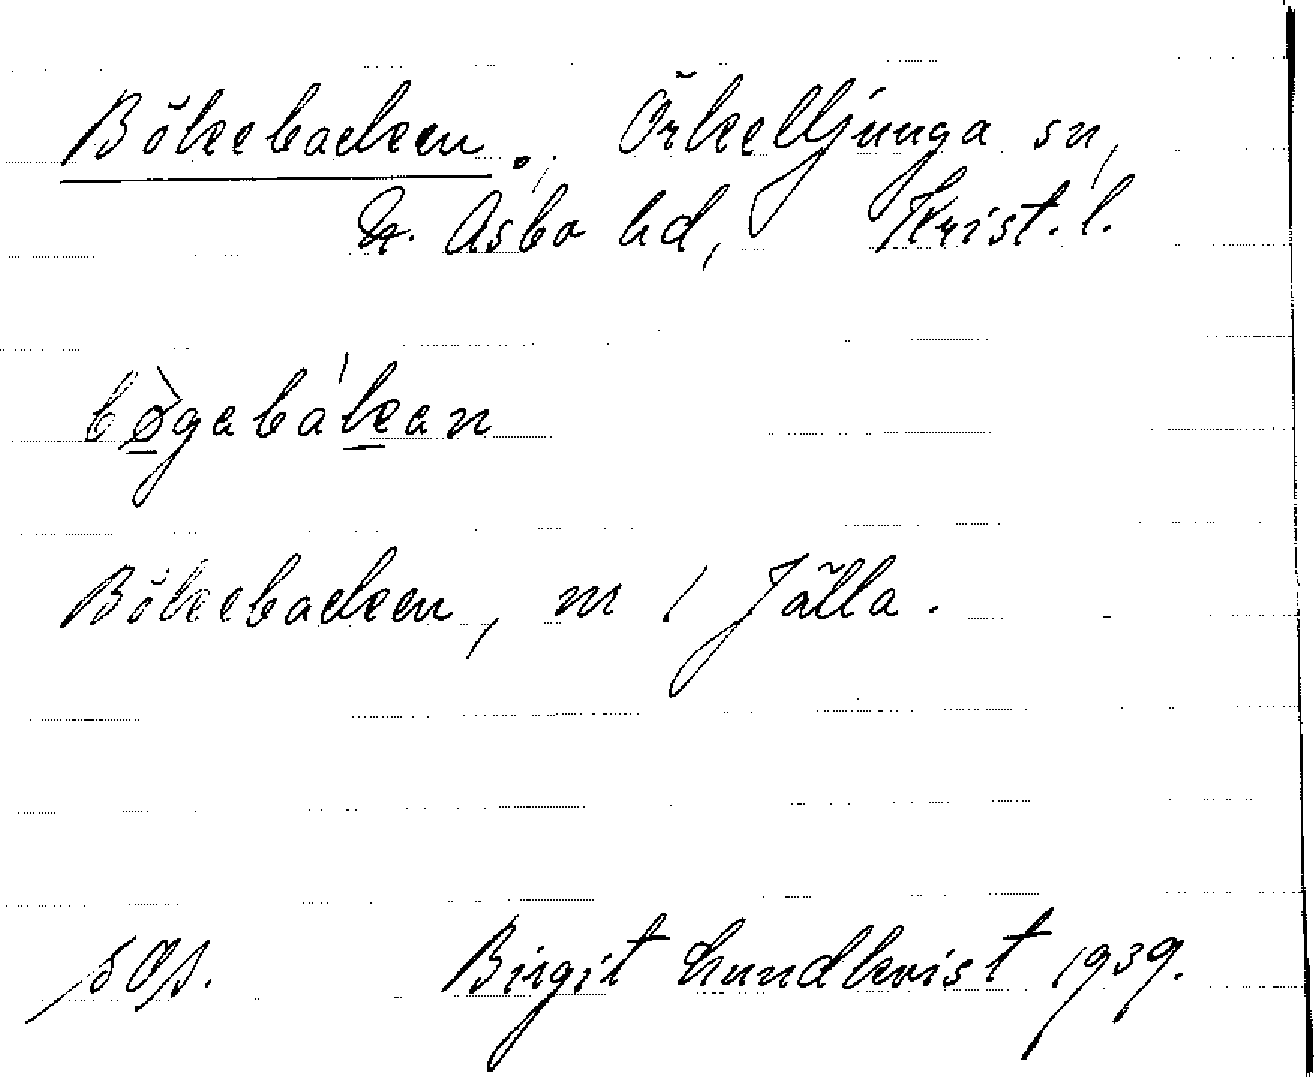 Bökebacken. Örkelljunga sn,
N. Åsbo hd, Krist. l.
bø̀gebákan
Bökebacken, m / Jälla.
Birgit Lundkvist 1939.